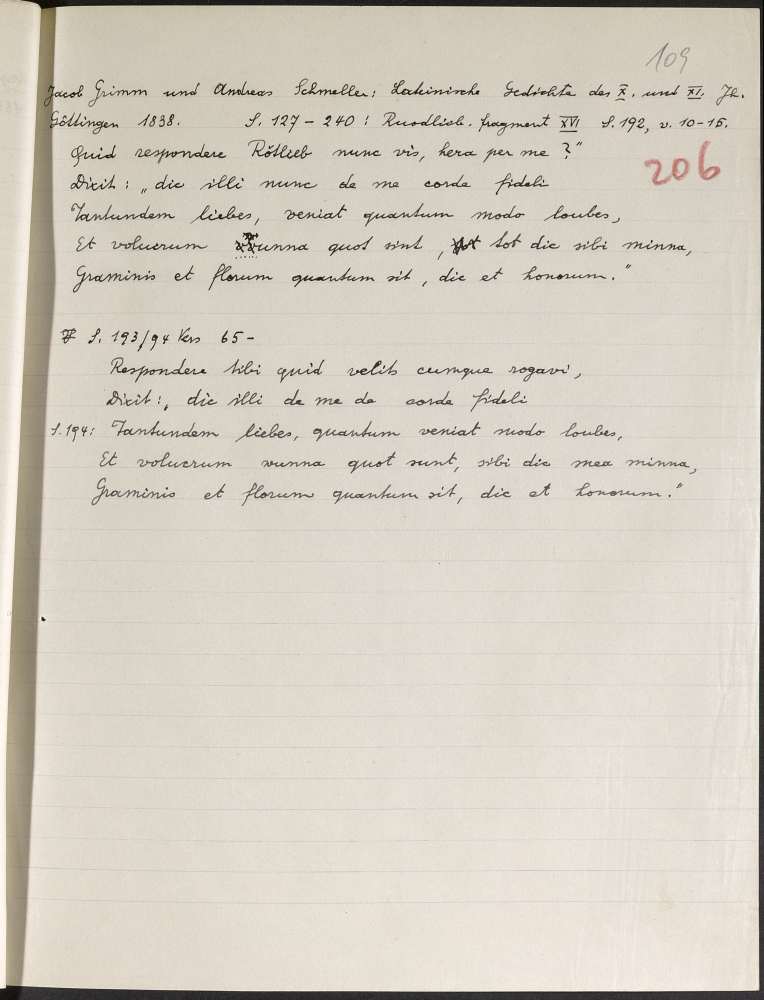 109
Jacob Grimm und Andreas Schmeller: Lateinische Gedichte des X. und XI. Jh.
Göttingen 1838. S. 127 - 240: Ruodlieb. fragment XVI S. 192, v. 10-15.
Quid respondere Rötlieb nunc vis, hera per me?"
206
Dixit: „dic illi nunc de me corde fideli
Tantundem liebes, veniat quantum modo loubes,
Et volucrum wunna quot sint, tot dic sibi minna,
Graminis et florum quantum sit, dic et honorum."
S. 193/94 Vers 65-
Respondere tibi quid velit cumque rogavi,
Dixit:, dic illi de me de corde fideli
S. 194: Tantundem liebes, quantum veniat modo loubes,
Et volucrum wunna quot sunt, sibi dic mea minna,
Graminis et florum quantum sit, dic et honorum."